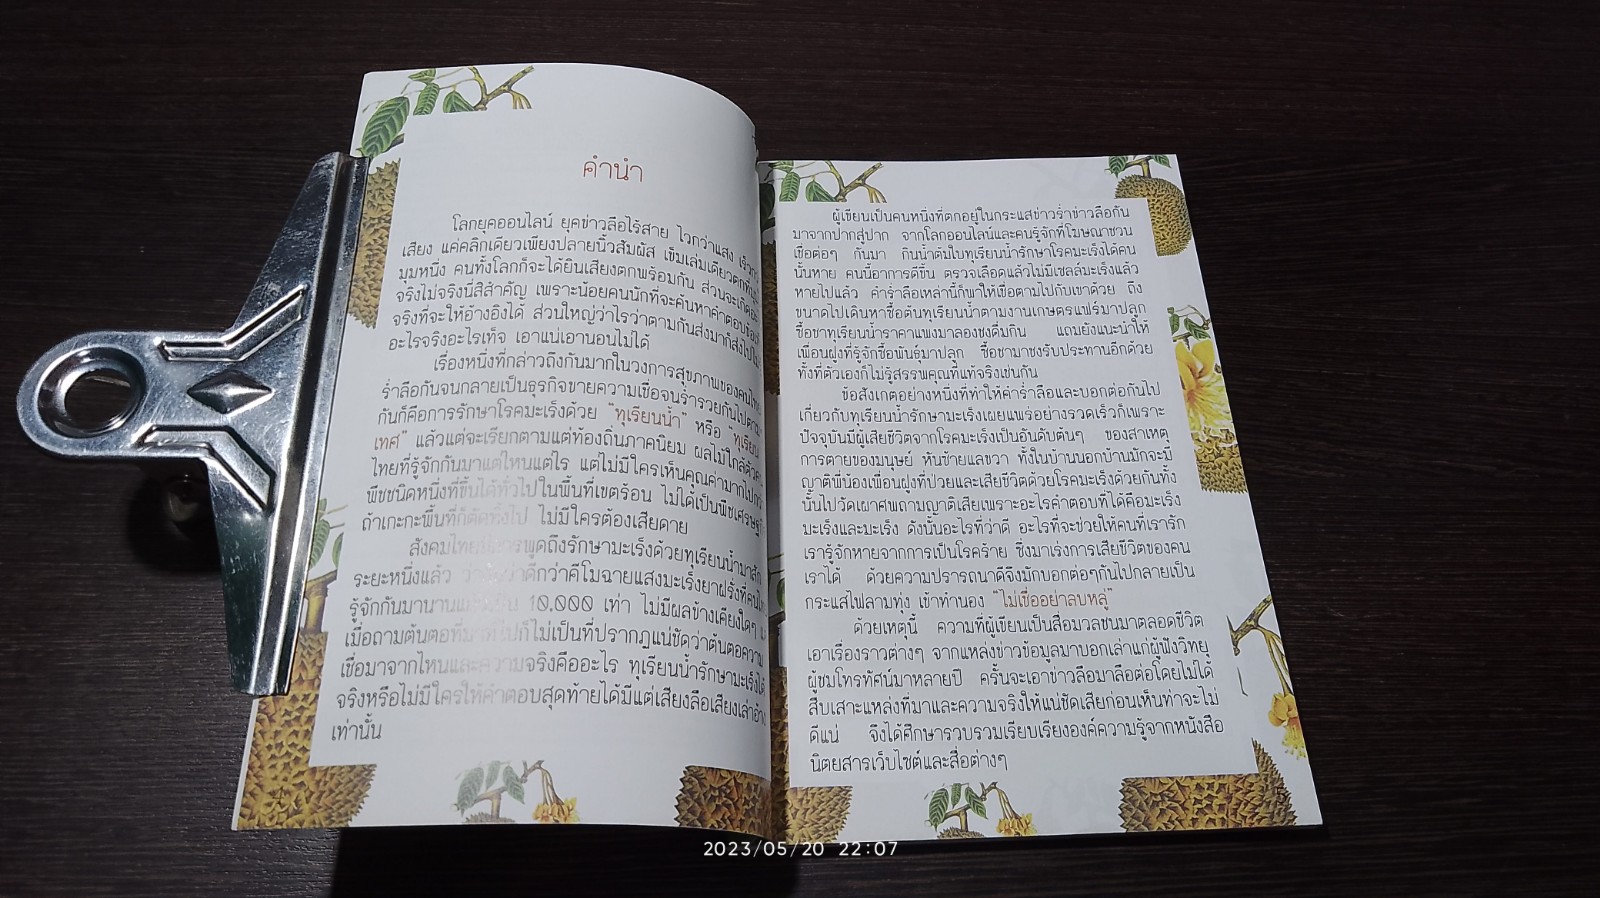 คำนำ
โลกยุคออนไลน์ ยุคข่าวลือไร้สาย ไวกว่าแสง เร็วกว่า
เสียง แค่คลิกเดียวเพียงปลายนิ้วสัมผัส เข็มเล่มเดียวตกที่มุม
มุมหนึ่ง คนทั้งโลกก็จะได้ยินเสียงตกพร้อมกัน ส่วนจะเกิด
จริงไม่จริงนี่สิสำคัญ เพราะน้อยคนนักที่จะค้นหาคำตอบข้อเท็จ
จริงที่จะให้อ้างอิงได้ ส่วนใหญ่ว่าไรว่าตามกันส่งมาก็ส่งไปไม่
อะไรจริงอะไรเท็จ เอาแน่เอานอนไม่ได้
เรื่องหนึ่งที่กล่าวถึงกันมากในวงการสุขภาพของคนไทย
ร่ำลือกันจนกลายเป็นธุรกิจขายความเชื่อจนร่ำรวยกันไปตาม
กันก็คือการรักษาโรคมะเร็งด้วย "ทุเรียนน้ำ" หรือ ทุเรียน
เทศ" แล้วแต่จะเรียกตามแต่ท้องถิ่นภาคนิยม ผลไม้ใกล้ตัว
ไทยที่รู้จักกันมาแต่ไหนแต่ไร แต่ไม่มีใครเห็นคุณค่ามากไปกว่า
พืชชนิดหนึ่งที่ขึ้นได้ทั่วไปในพื้นที่เขตร้อน ไม่ได้เป็นพืชเศรษฐกิจ
ถ้าเกะกะพื้นที่ก็ตัดทิ้งไป ไม่มีใครต้องเสียดาย
สังคมไทยมีการพูดถึงรักษามะเร็งด้วยทุเรียนน้ำมาสัก
ระยะหนึ่งแล้ว ว่ากันว่าดีกว่าคีโมฉายแสงมะเร็งยาฝรั่งที่คนไทย
รู้จักกันมานาน 10,000 เท่า ไม่มีผลข้างเคียงใดๆ
เมื่อถามต้นตอที่มาที่ไปก็ไม่เป็นที่ปรากฏแน่ชัดว่าต้นตอความ
เชื่อมาจากไหนและความจริงคืออะไร ทุเรียนน้ำรักษามะเร็งได้
จริงหรือไม่มีใครให้คำตอบสุดท้ายได้มีแต่เสียงลือเสียงเล่าอ้าง
เท่านั้น
ผู้เขียนเป็นคนหนึ่งที่ตกอยู่ในกระแสข่าวร่ำข่าวลือกัน
มาจากปากสู่ปาก จากโลกออนไลน์และคนรู้จักที่โฆษณาชวน
เชื่อต่อๆ กันมา กินน้ำต้มใบทุเรียนน้ำรักษาโรคมะเร็งได้คน
นั้นหาย คนนี้อาการดีขึ้น ตรวจเลือดแล้วไม่มีเซลล์มะเร็งแล้ว
หายไปแล้ว คำร่ำลือเหล่านี้ก็พาให้เชื่อตามไปกับเขาด้วย ถึง
ขนาดไปเดินหาซื้อต้นทุเรียนน้ำตามงานเกษตรแฟร์มาปลูก
ซื้อชาทุเรียนน้ำราคาแพงมาลองชงดื่มกิน แถมยังแนะนำให้
เพื่อนฝูงที่รู้จักซื้อพันธุ์มาปลูก ซื้อชามาชงรับประทานอีกด้วย
ทั้งที่ตัวเองก็ไม่รู้สรรพคุณที่แท้จริงเช่นกัน
ข้อสังเกตอย่างหนึ่งที่ทำให้คำร่ำลือและบอกต่อกันไป
เกี่ยวกับทุเรียนน้ำรักษามะเร็งเผยแพร่อย่างรวดเร็วก็เพราะ
ปัจจุบันมีผู้เสียชีวิตจากโรคมะเร็งเป็นอันดับต้นๆ ของสาเหตุ
การตายของมนุษย์ หันซ้ายแลขวา ทั้งในบ้านนอกบ้านมักจะมี
ญาติพี่น้องเพื่อนฝูงที่ป่วยและเสียชีวิตด้วยโรคมะเร็งด้วยกันทั้ง
นั้นไปวัดเผาศพถามญาติเสียเพราะอะไรคำตอบที่ได้คือมะเร็ง
มะเร็งและมะเร็ง ดังนั้นอะไรที่ว่าดี อะไรที่จะช่วยให้คนที่เรารัก
เรารู้จักหายจากการเป็นโรคร้าย ซึ่งมาเร่งการเสียชีวิตของคน
เราได้ ด้วยความปรารถนาดีจึงมักบอกต่อๆกันไปกลายเป็น
กระแสไฟลามทุ่ง เข้าทำนอง "ไม่เชื่ออย่าลบหลู่"
ด้วยเหตุนี้ ความที่ผู้เขียนเป็นสื่อมวลชนมาตลอดชีวิต
เอาเรื่องราวต่างๆ จากแหล่งข่าวข้อมูลมาบอกเล่าแก่ผู้ฟังวิทยุ
ผู้ชมโทรทัศน์มาหลายปี ครั้นจะเอาข่าวลือมาลือต่อโดยไม่ได้
สืบเสาะแหล่งที่มาและความจริงให้แน่ชัดเสียก่อนเห็นท่าจะไม่
ดีแน่ จึงได้ศึกษารวบรวมเรียบเรียงองค์ความรู้จากหนังสือ
นิตยสารเว็บไซต์และสื่อต่างๆ
2023/05/20 22:07